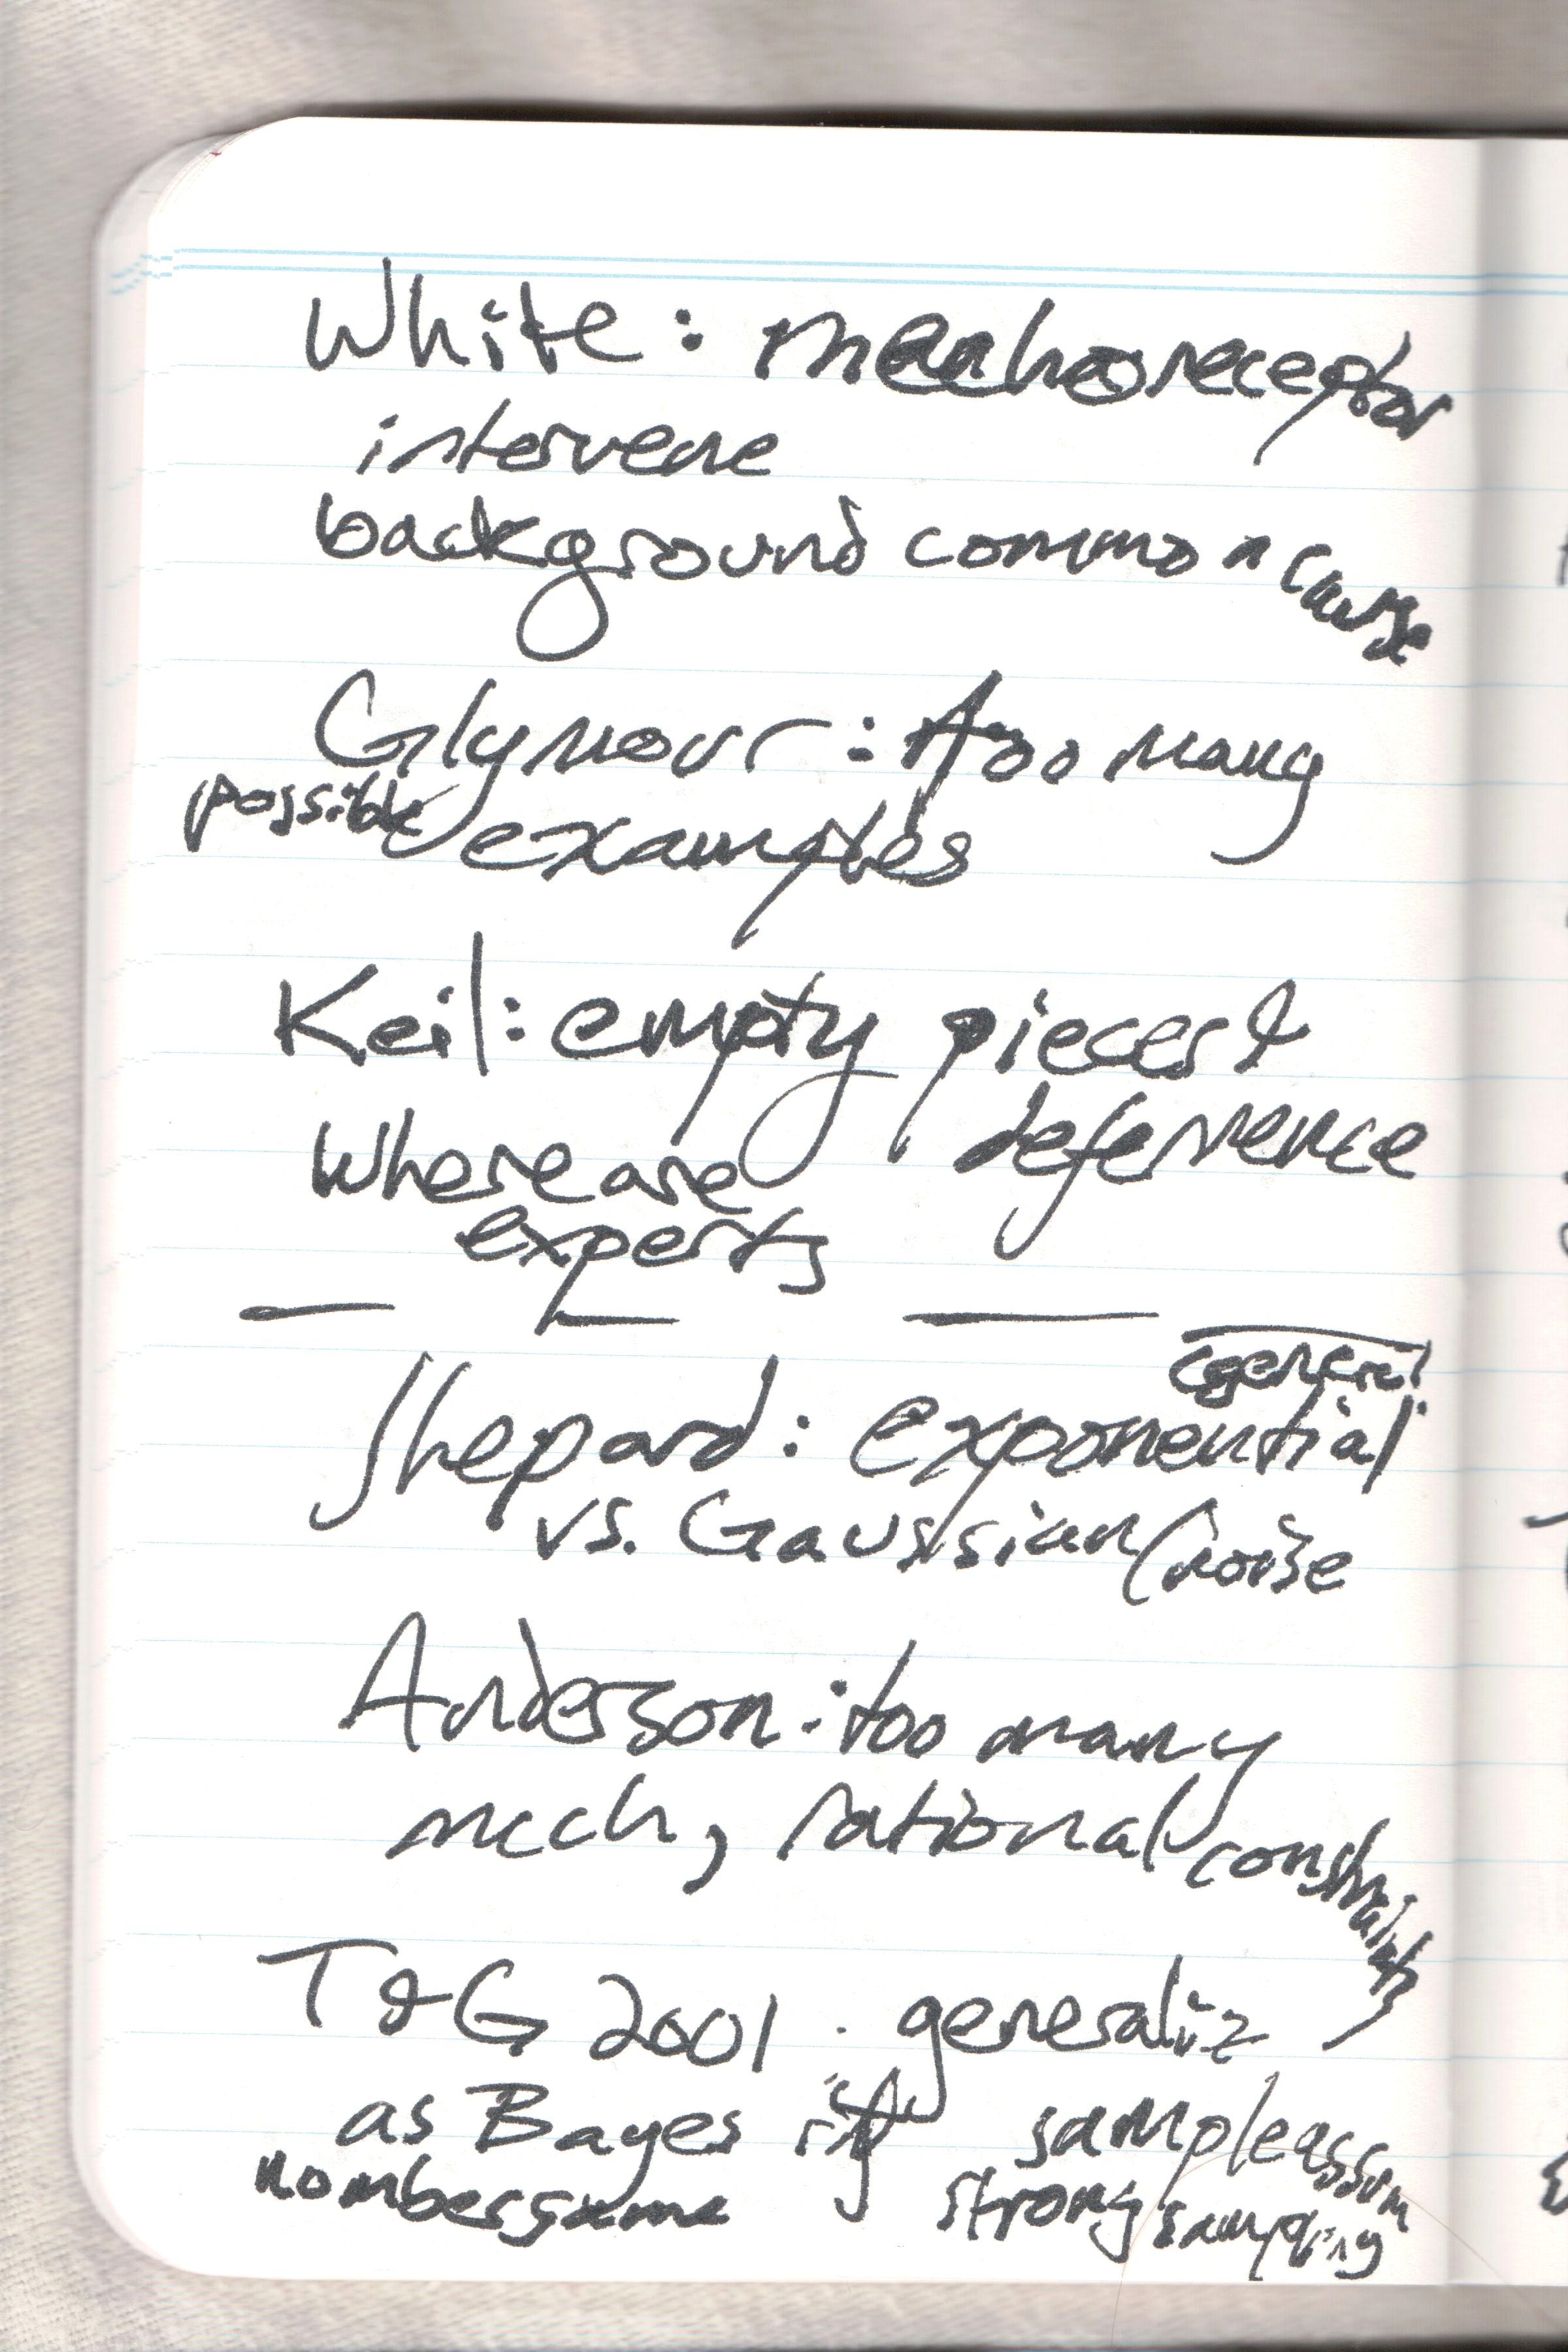 White: mechanoreceptor
intervene
background common cause
Glymour: too many
possible examples
Keil: empty pieces &
deference
Where are
experts
general
Shepard: exponential
vs. Gaussian/noise
Anderson: too many
mech, rational constraints
T&G 2001: generaliz
as Bayes if sample assum
numbergame strong sampling